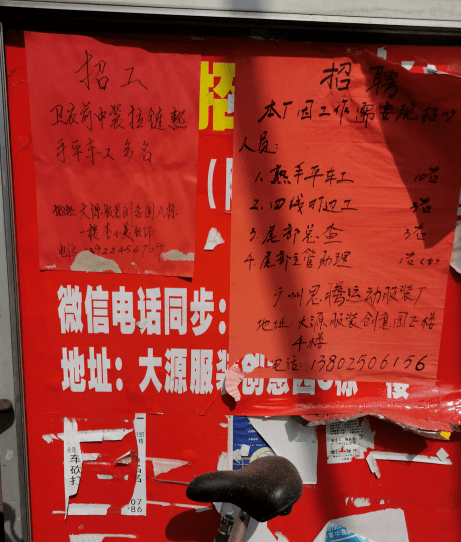 招工
卫衣前中装拉链熟
手平车工多名
地址:大源服装创意园八栋
招
招聘
本厂因工作需要现招以下
人员:
1.熟手平车工 10名
2.四线打边工 3名
3.尾部总查 3名
4.尾部主管助理 1名(女)
广州思腾运动服装厂
地址:大源服装创意园E栋
4楼
电话:13802506156
微信电话同步:
地址:大源服装创意园 栋 楼
车砍打